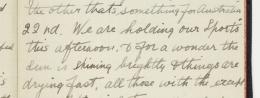 the other that's something for Australia
22nd. We are holding our Sports
this afternoon, & for a wonder the
sun is shining brightly & things are
drying fast, all those with the except